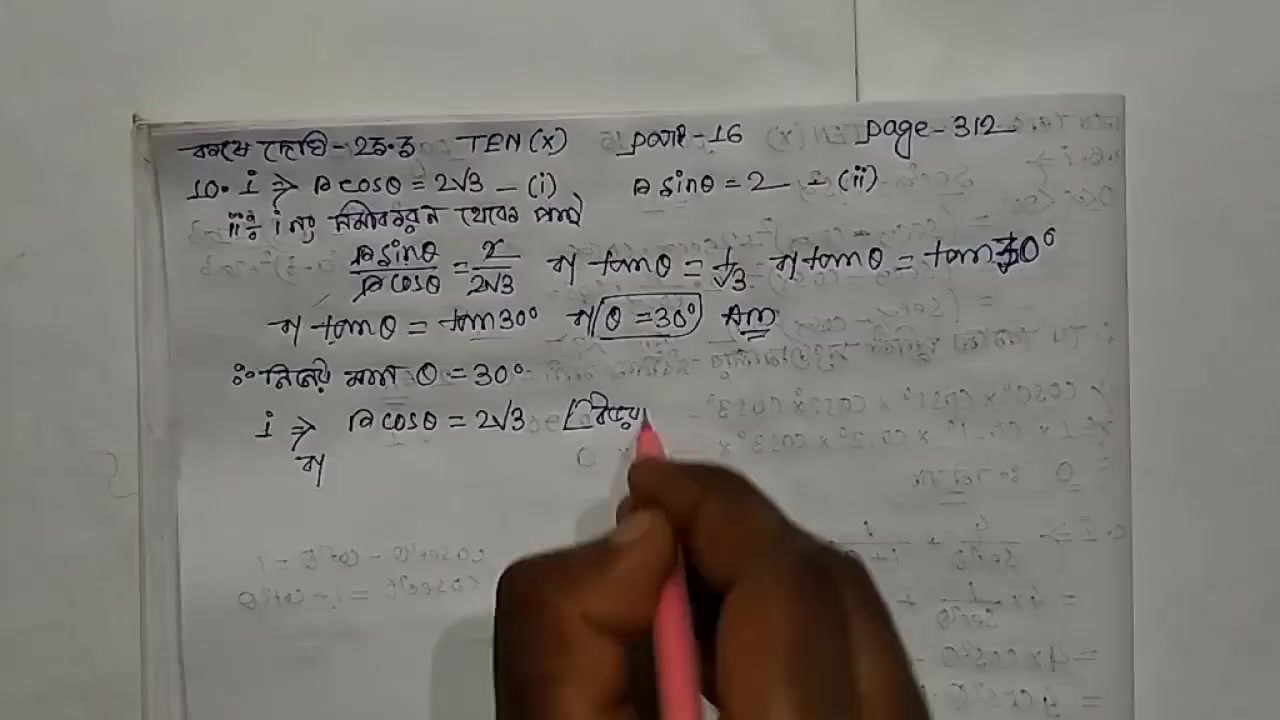 কষে দেখি - 23.3 TEN (X) part-16 page-312
10. i ⇒ r cosθ = 2√3 - (i) r sinθ = 2 - (ii)
ii ÷ i নং সমীকরন থেকে পাই
r sinθ / r cosθ = 2 / 2√3 বা tanθ = 1/√3 বা tanθ = tan30°
বা tanθ = tan30° বা θ = 30° Am
∴ নির্ণেয় মান θ = 30°
i ⇒ r cosθ = 2√3 [
বা